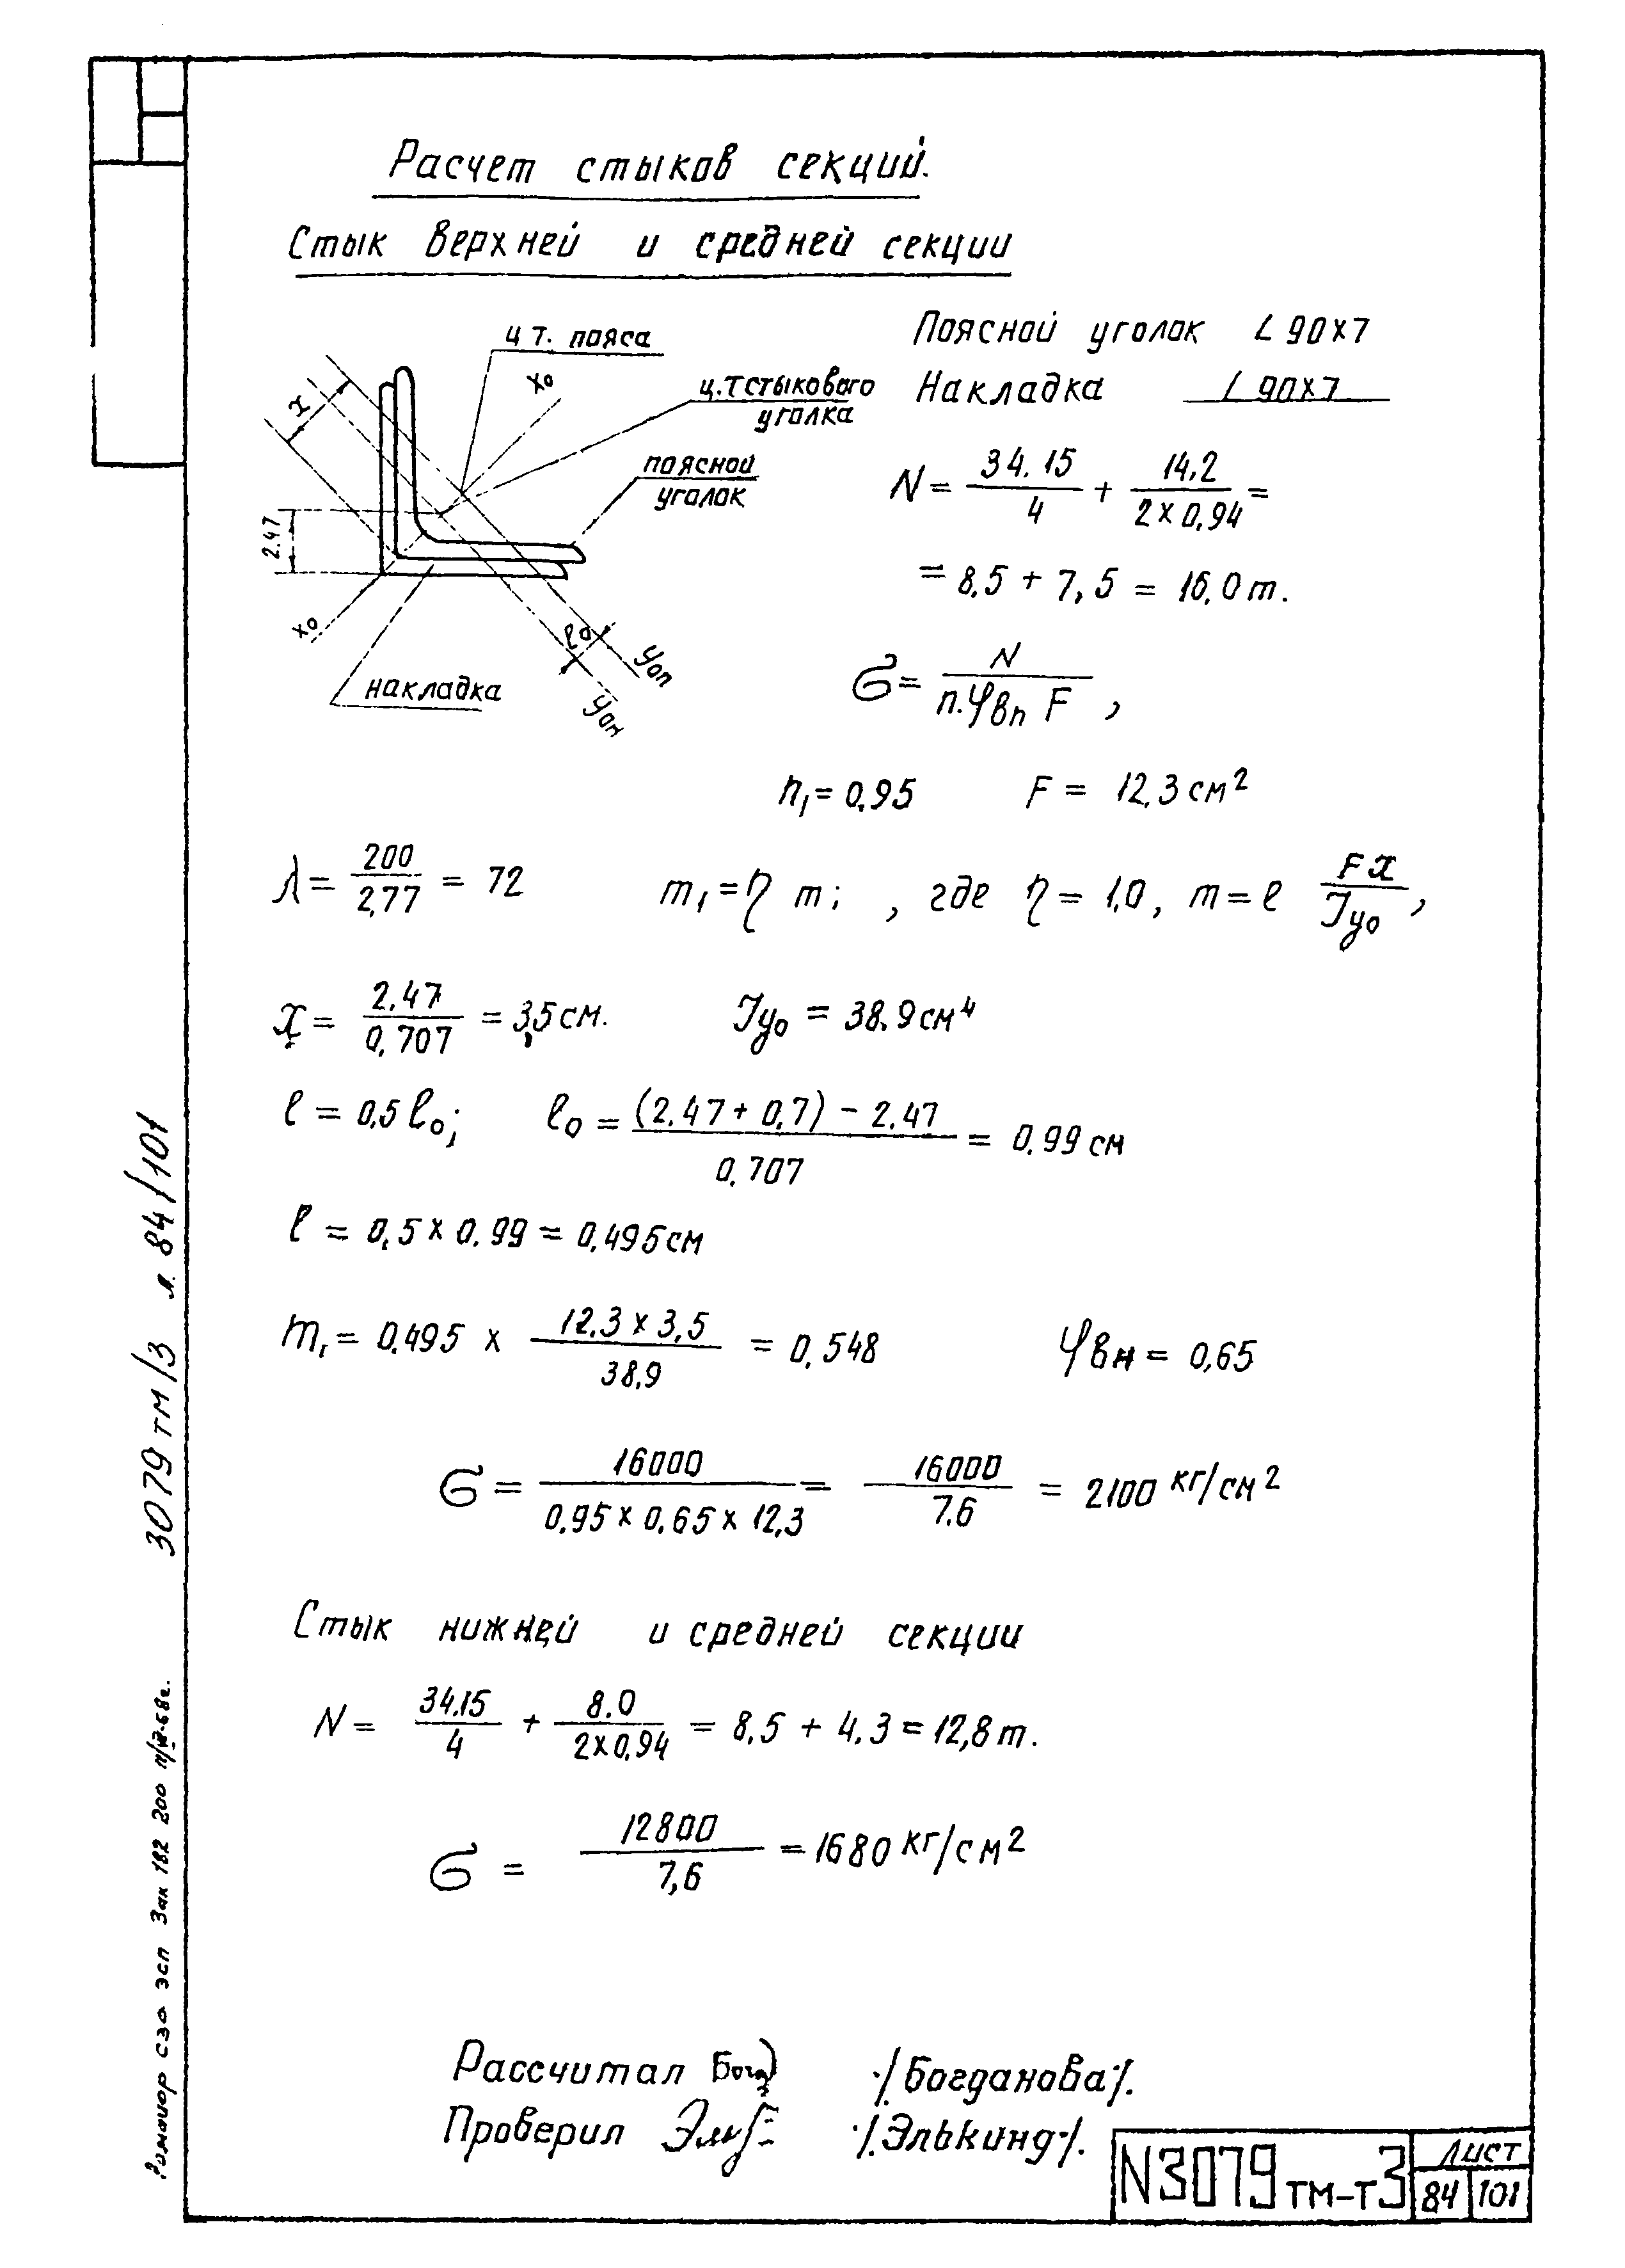 Расчет стыков секций.
Стык верхней и средней секции
ц т. пояса
x₀
ц.т стыкового
уголка
поясной
уголок
x
2.47
x₀
ℓ₀
y₀п
y₀н
накладка
Поясной уголок L 90×7
Накладка L 90×7
N = 34.15/4 + 14.2/(2×0,94) =
= 8,5 + 7,5 = 16,0 т.
σ = N/(п.φвп F) ,
n₁ = 0,95 F = 12,3 см²
λ = 200/2,77 = 72 m₁ = η m; , где η = 1,0, m = ℓ Fx/Jy₀ ,
x = 2,47/0,707 = 3,5 см. Jy₀ = 38.9 см⁴
ℓ = 0,5 ℓ₀; ℓ₀ = ((2.47 + 0,7) − 2.47)/0.707 = 0,99 см
ℓ = 0,5 × 0.99 = 0,495 см
m₁ = 0.495 × (12.3 × 3,5)/38,9 = 0,548 φвн = 0,65
σ = 16000/(0,95 × 0,65 × 12,3) = 16000/7.6 = 2100 кг/см²
Стык нижней и средней секции
N = 34.15/4 + 8.0/(2×0,94) = 8,5 + 4,3 = 12,8 т.
σ = 12800/7,6 = 1680 кг/см²
Рассчитал ·/Богданова/.
Проверил ·/.Элькинд·/.
N3079тм-т3
Лист
84 101
3079тм/3 л. 84/101
сзо эсп Зак 182 200